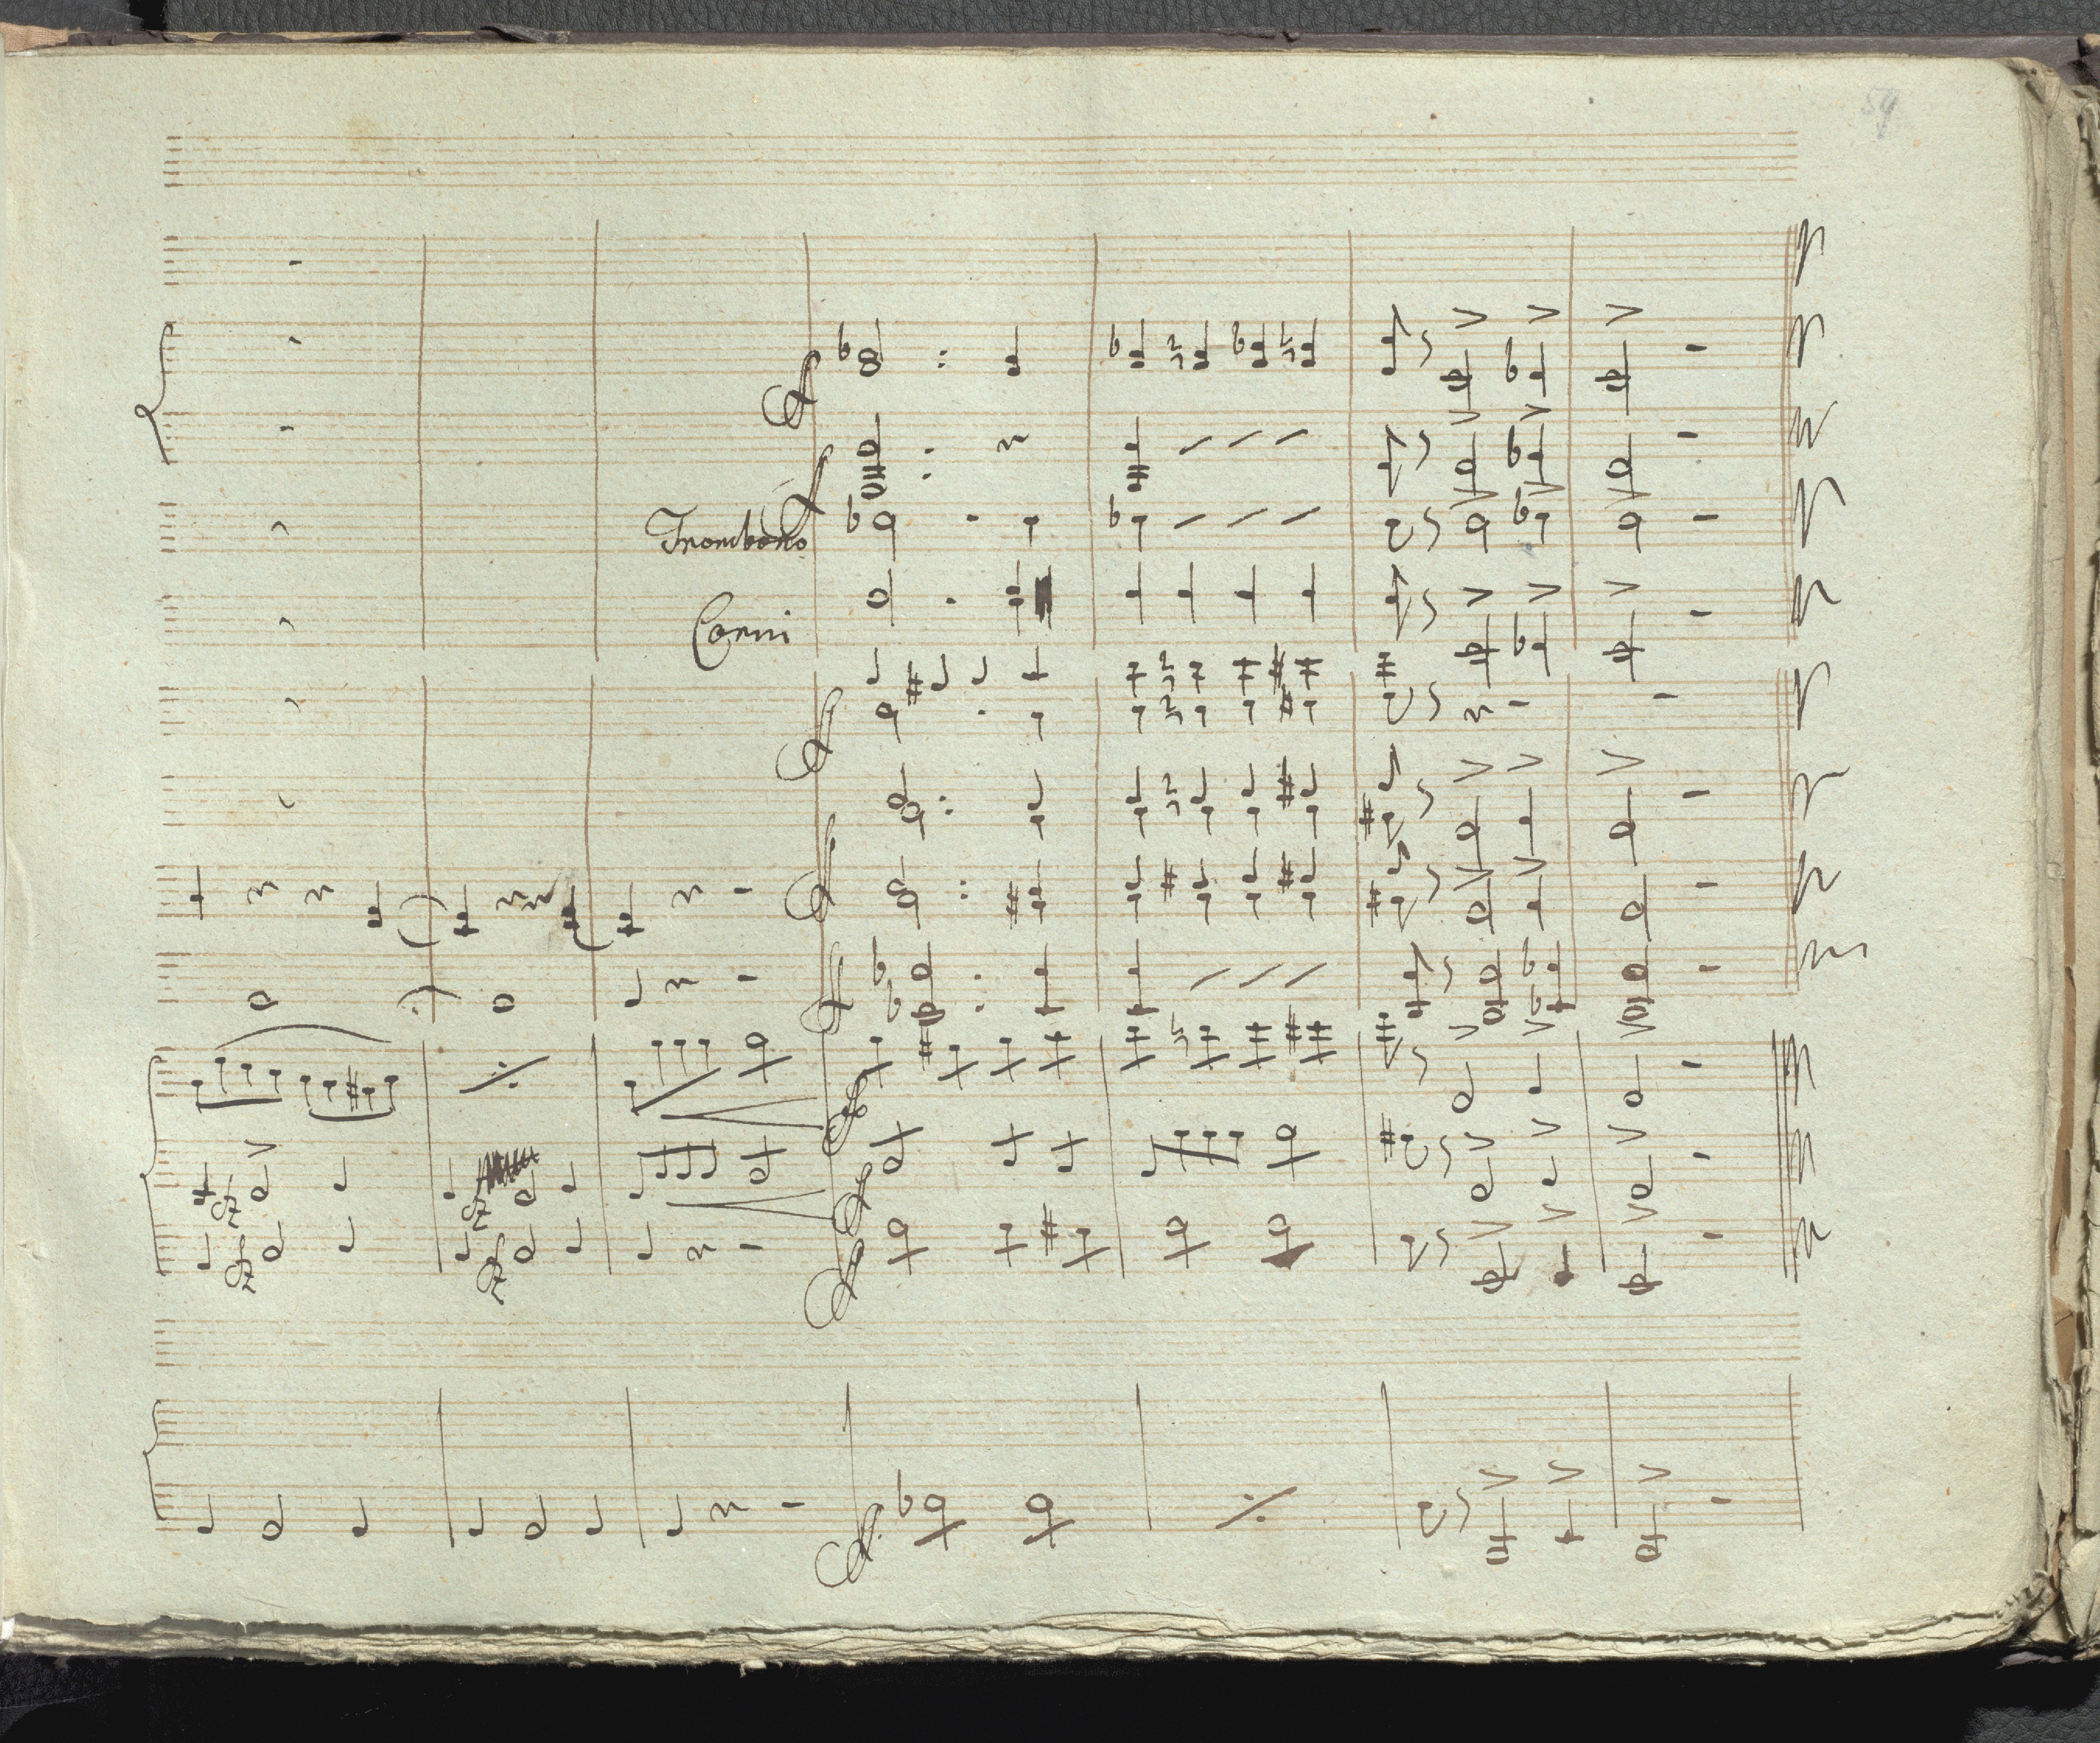 59
Trombono
Corni